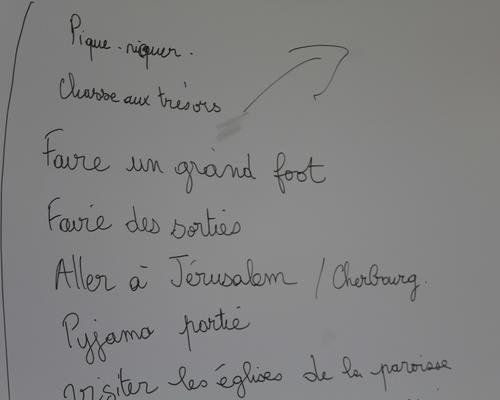 Pique-niquer.
Chasse aux trésors
Faire un grand foot
Faire des sorties
Aller à Jérusalem / Cherbourg.
Pyjama partie
Visiter les églises de la paroisse